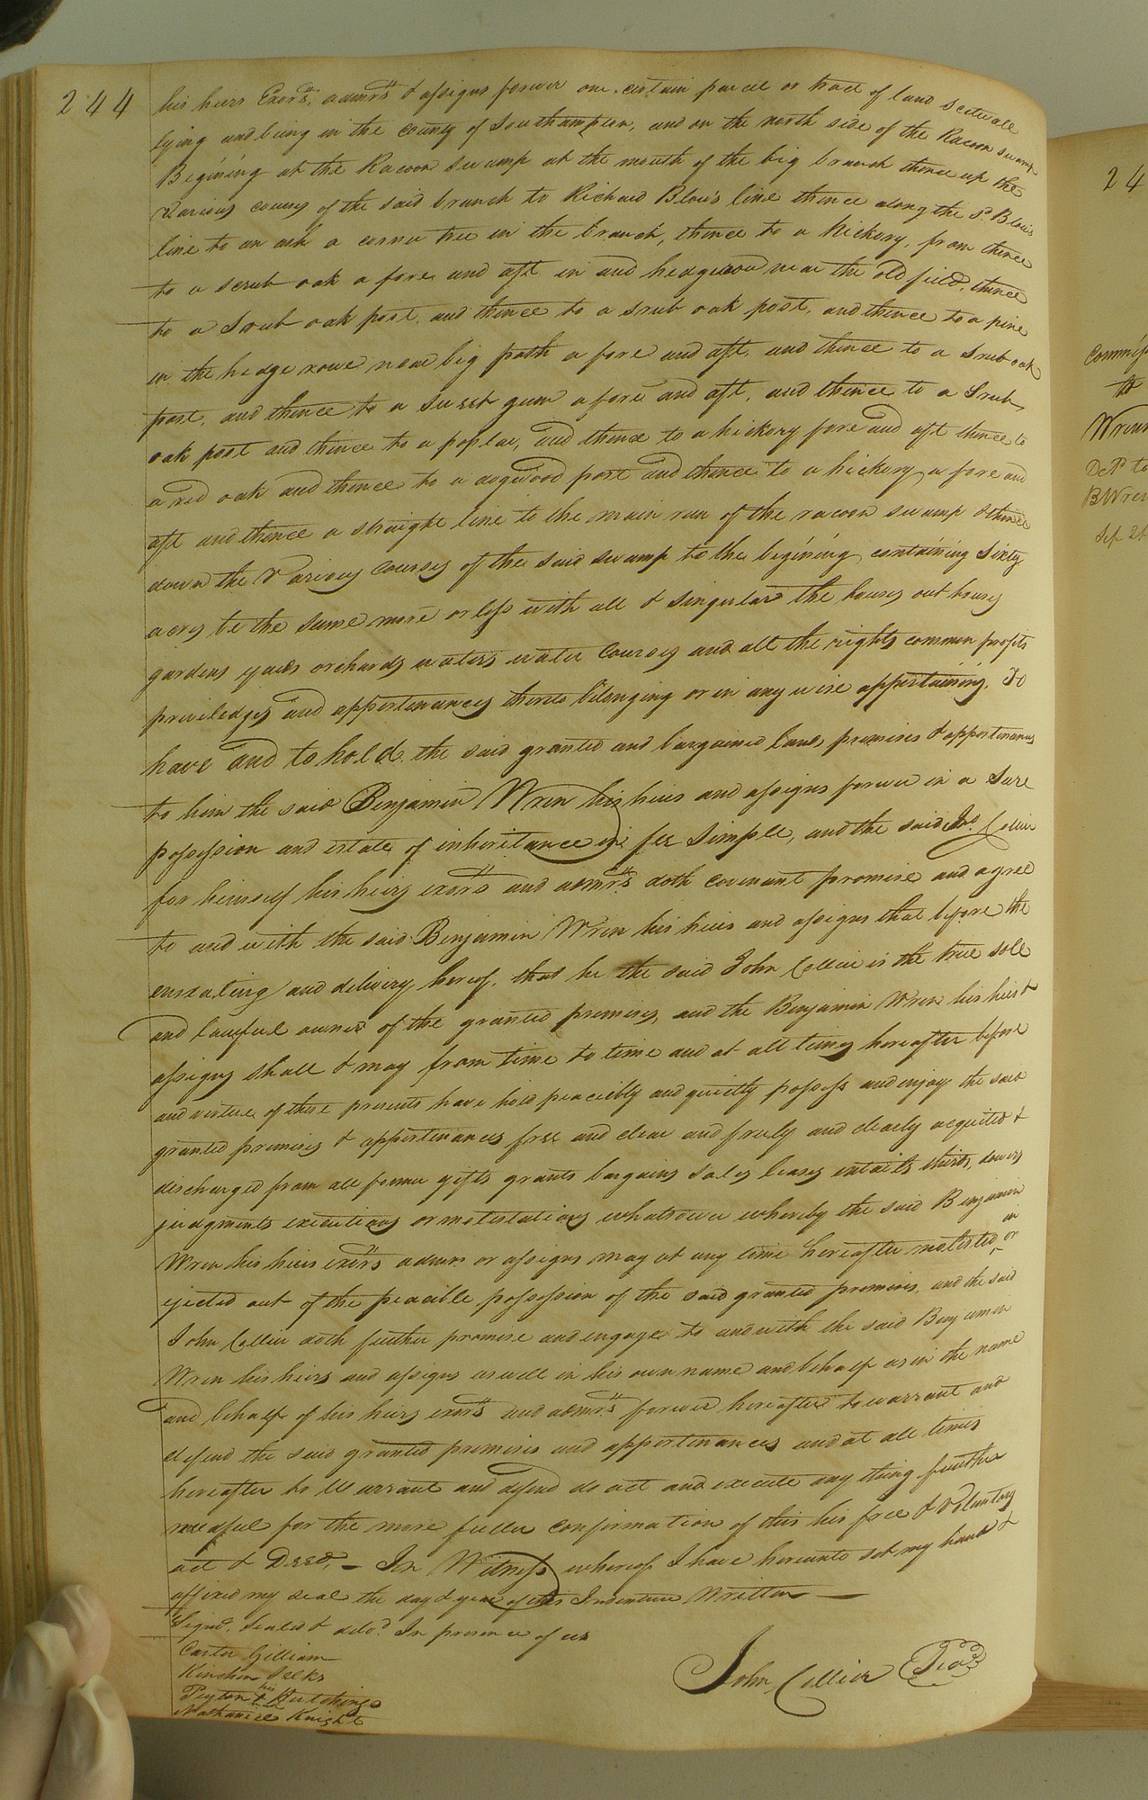 244
his heirs Exors, admrs & assigns forever one certain parcel or tract of land scituate
lying and being in the county of Southampton, and on the north side of the Racoon swamp
Begining at the Racoon swamp at the mouth of the big branch thence up the
various courses of the said branch to Richard Blow's line thence along the Sd Blow's
line to an ash a corner tree in the branch, thence to a hickory, from thence
to a scrub oak a fore and aft in and hedgerow near the old field, thence
to a Srub oak post, and thence to a srub oak post, and thence to a pine
in the hedge rowe near big path a fore and aft, and thence to a Srub oak
post, and thence to a Sweet gum a fore and aft, and thence to a Srub
oak post and thence to a poplar, and thence to a hickory fore and aft thence to
a red oak and thence to a dogwood post and thence to a hickory a fore and
aft and thence a straight line to the main run of the racoon swamp & thence
down the various courses of the said swamp to the begining containing Sixty
acres be the same more or less with all & singular the houses out houses
gardens yards orchards waters water courses and all the rights common profits
priviledges and appertenances thereto belonging or in any wise appertaining. To
have and to hold the said granted and bargained land, premises & appertenances
to him the said Benjamin Wren his heirs and assigns forever in a Sure
possession and estate of inheritance in fee Simple, and the said Jno. Collier
for himself his heirs exors and admrs doth covenant promise and agree
to and with the said Benjamin Wren his heirs and assigns that before the
ensealing and delivery hereof, that he the said John Collier is the true sole
and lawful owner of the granted premises, and the Benjamin Wren his heirs &
assigns shall & may from time to time and at all times hereafter before
and virtue of these presents have hold peaceibly and quietly possess and enjoy the said
granted premises & appertenances free and clear and freely and clearly acquited &
discharged from all former gifts grants bargains sales leases entails thirds, dowers
judgments executions or molestations whatsoever whereby the said Benjamin
Wren his heirs exors admrs or assigns may at any time hereafter molested or
ejected out of the peacible possession of the said granted premises, and the said
John Collier doth further promise and engage to and with the said Benjamin
Wren his heirs and assigns as well in his own name and behalf as in the name
and behalf of his heirs exors and admrs forever hereafter to warrant and
defend the said granted premises and appertenances and at all times
hereafter to warrant and defend do act and execute any thing further
needful for the more fuller confirmation of this his free & voluntary
act & Deed, - In Witness whereof I have hereunto set my hand &
affixed my seal the day & year of this Indenture Written
Signd, Sealed & deld. In presence of us
Carter Gilliam
Kinchen Peeks
Peyton his Hutchings
Nathaniel Knight
John Collier Seal
24
Commis
to
Wren
Deld to
B Wren
Sep 26